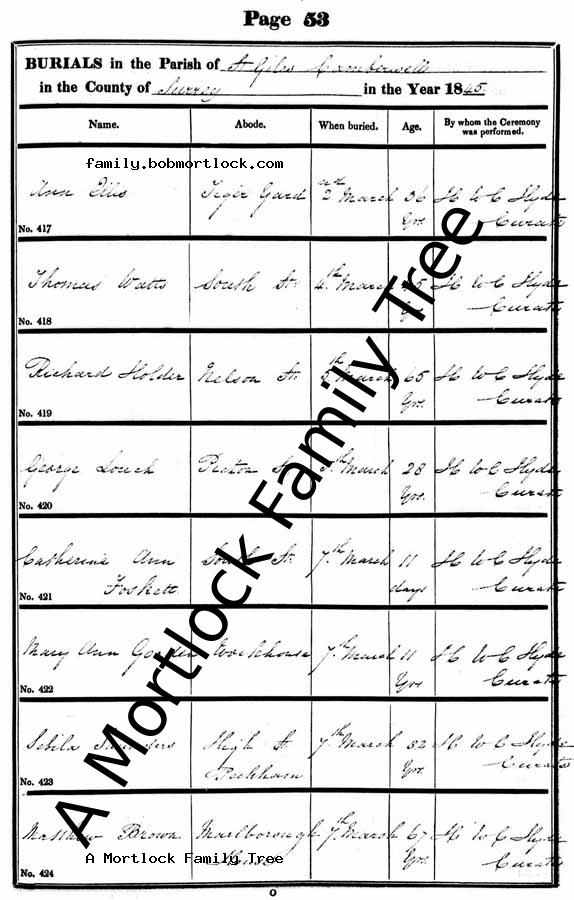 Page 53
BURIALS in the Parish of St Giles Camberwell
in the County of Surrey in the Year 1845.
Name. Abode. When buried. Age. By whom the Ceremony was performed.
family.bobmortlock.com
Ann Tiger Yard 2nd March 36 H W C Hyde
Yrs Curate
No. 417
Thomas Watts South St. 4th March H W C Hyde
Curate
No. 418
Richard Holder Nelson St. March 65 H W C Hyde
Yrs. Curate
No. 419
George March 28 H W C Hyde
Yrs. Curate
No. 420
Catherine Ann South St. 7th March 11 H W C Hyde
Foskett days Curate
No. 421
Mary Ann Workhouse 7th March 11 H W C Hyde
Yrs Curate
No. 422
Sibila High St. 7th March 32 H W C Hyde
Peckham Yrs. Curate
No. 423
Matthew Brown Marlborough 7th March 67 H W C Hyde
Yrs. Curate
A Mortlock Family Tree
No. 424
A Mortlock Family Tree